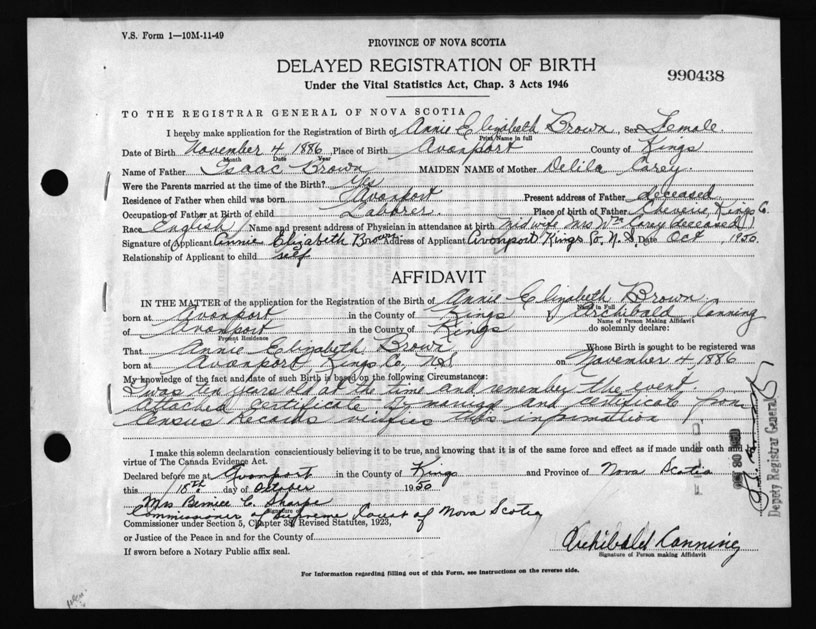 V.S. Form 1—10M-11-49
PROVINCE OF NOVA SCOTIA
DELAYED REGISTRATION OF BIRTH
990438
Under the Vital Statistics Act, Chap. 3 Acts 1946
TO THE REGISTRAR GENERAL OF NOVA SCOTIA
I hereby make application for the Registration of Birth of Annie Elizabeth Brown, Sex Female
Print Name in full
Date of Birth November 4 1886, Place of Birth Avonport County of Kings
Month Date Year
Name of Father Isaac Brown MAIDEN NAME of Mother Delila Carey
Were the Parents married at the time of Birth? Yes
Residence of Father when child was born Avonport Present address of Father deceased
Occupation of Father at Birth of child Laborer. Place of birth of Father Kings Co.
Race English Name and present address of Physician in attendance at birth Midwife Mrs Wm deceased
Signature of Applicant Annie Elizabeth Brown Address of Applicant Avonport Kings Co. N.S. Date Oct, 1950.
Relationship of Applicant to child self
AFFIDAVIT
IN THE MATTER of the application for the Registration of the Birth of Annie Elizabeth Brown
Name in Full
born at Avonport in the County of Kings I Archibald Canning
Name of Person Making Affidavit
of Avonport in the County of Kings do solemnly declare:
Present Residence
That Annie Elizabeth Brown Whose Birth is sought to be registered was
born at Avonport Kings Co. N.S. on November 4, 1886
My knowledge of the fact and date of such Birth is based on the following Circumstances:
I was ten years old at the time and remember the event
attached certificate by and certificate from
Census Records verifies this information
I make this solemn declaration conscientiously believing it to be true, and knowing that it is of the same force and effect as if made under oath
virtue of The Canada Evidence Act.
Declared before me at Avonport in the County of Kings and Province of Nova Scotia
this 18th day of October 1950
Mrs Bernice C. Sharpe
Signature of
Commissioner of Supreme Court of Nova Scotia
Commissioner under Section 5, Chapter 38, Revised Statutes, 1923,
or Justice of the Peace in and for the County of
If sworn before a Notary Public affix seal.
Archibald Canning
Signature of Person making Affidavit
For Information regarding filling out of this Form, see instructions on the reverse side.
Deputy Registrar General